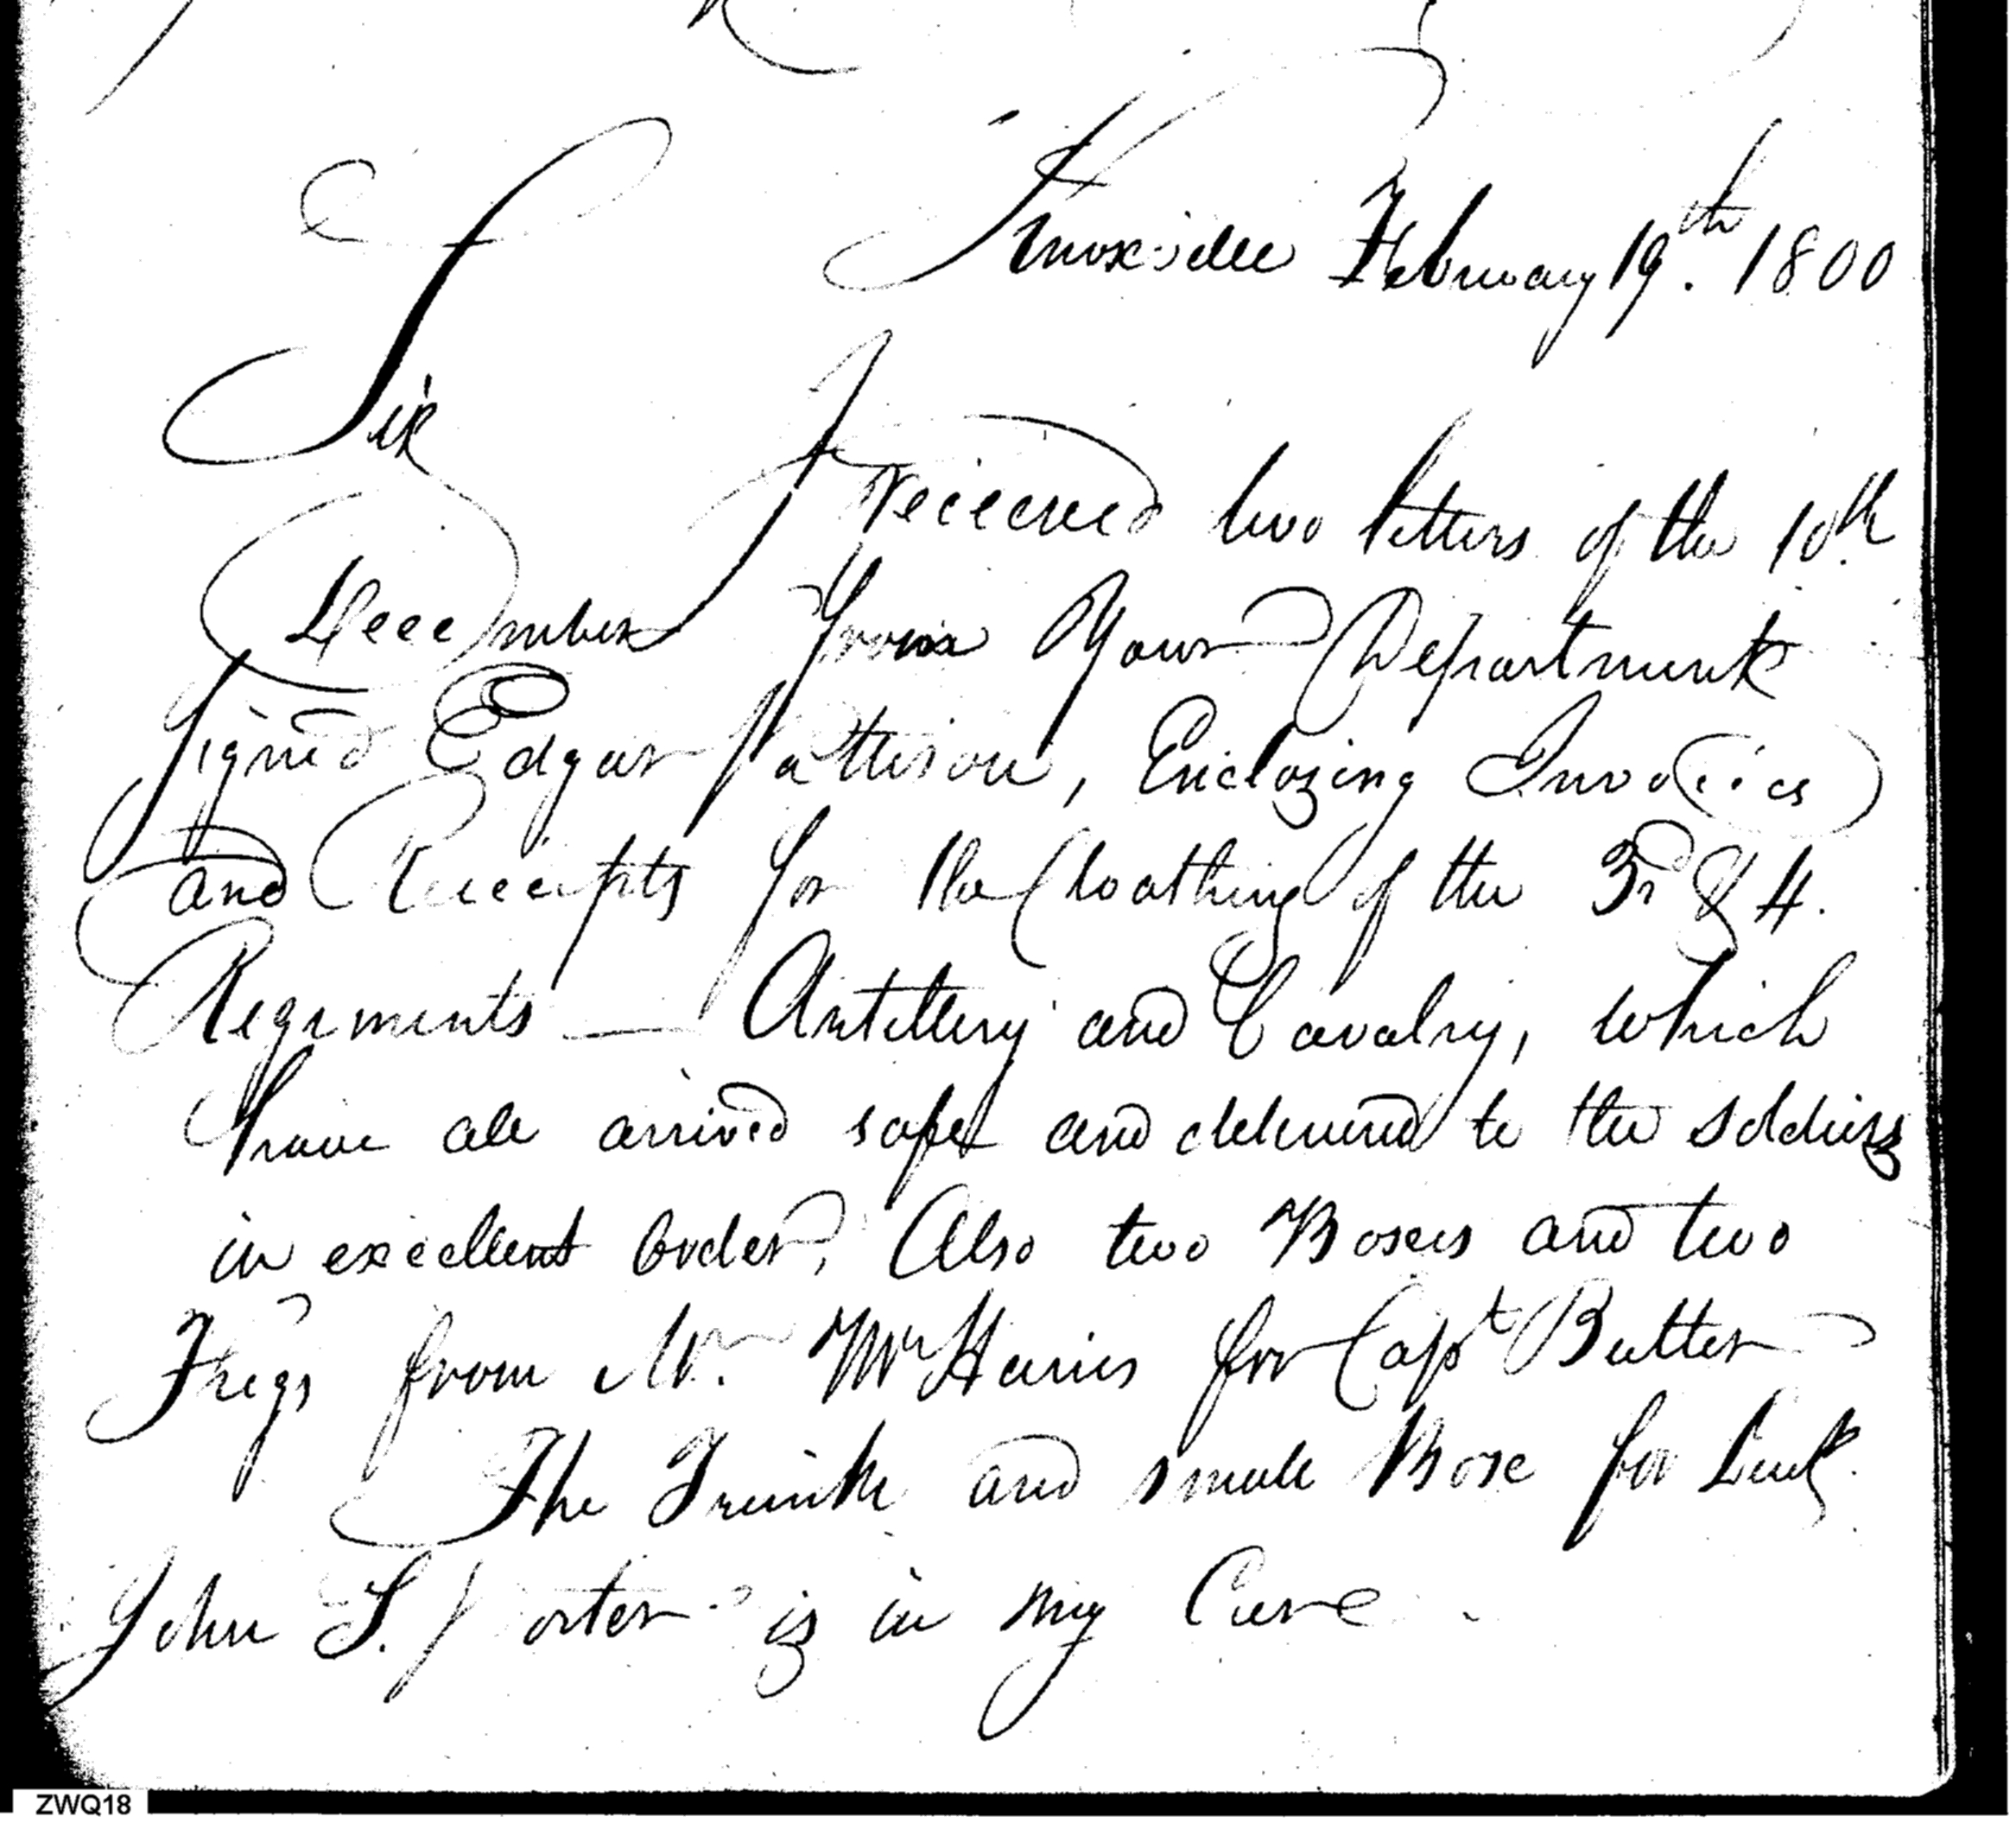 Knoxville February 19th. 1800
Sir
I received two letters of the 10th
December from Your Department
Signed Edgar Pattison, Enclozing Invoices
and Receipts for the Cloathing of the 3rd & 4.
Regiments — Artillery and Cavalry, which
have all arrived safe and delivered to the soldiers
in excellent order, Also two Boxes and two
from Mr. for Capt Butler
The Trunk and small Box for Lieut.
John S. Porter is in my Care
ZWQ18